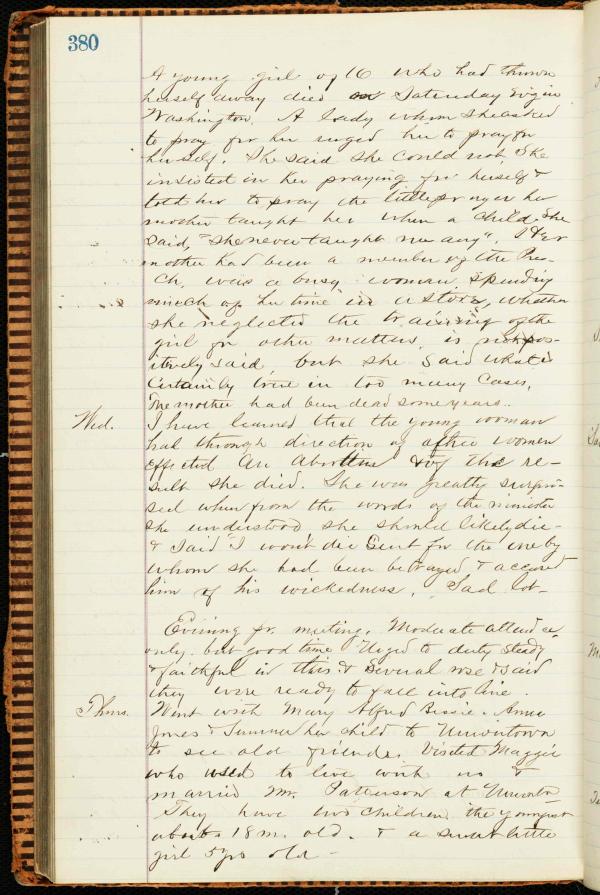 380
A young girl of 16 who had thrown
herself away died on Saturday Ev'g in
Washington. A lady whom she asked
to pray for her urged her to pray for
herself. She said she could not. She
insisted in her praying for herself &
told her to pray the little prayer her
mother taught her when a child. She
said, "She never taught me any". Her
mother had been a member of the Pres.
Ch. was a busy woman, spending
much of her time in a store, whether
she neglected the training of the
girl for other matters, is not pos-
itively said, but she said what is
certainly true in too many cases.
The mother had been dead some years.
Wed. I have learned that the young woman
had through direction of other women
effected an abortion & of the re-
sult she died. She was greatly surpri-
sed when from the words of the minister
she understood she should likely die-
& said "I won't die" Sent for the one by
whom she had been betrayed & accused
him of his wickedness. Sad lot-
Evening pr. meeting. Moderate attendce
only. but good time. Urged to duty steady
& faithful in this. & several rose & said
they were ready to fall into line.
Thurs. Went with Mary Alfred Bessie. Anna
Jones & Sumner her child to Uniontown
to see old friends. Visited Maggie
who used to live with us &
married Mr. Patterson at Uniontn
They have two children the youngest
about 18 m. old. & a sweet little
girl 5 yrs old -